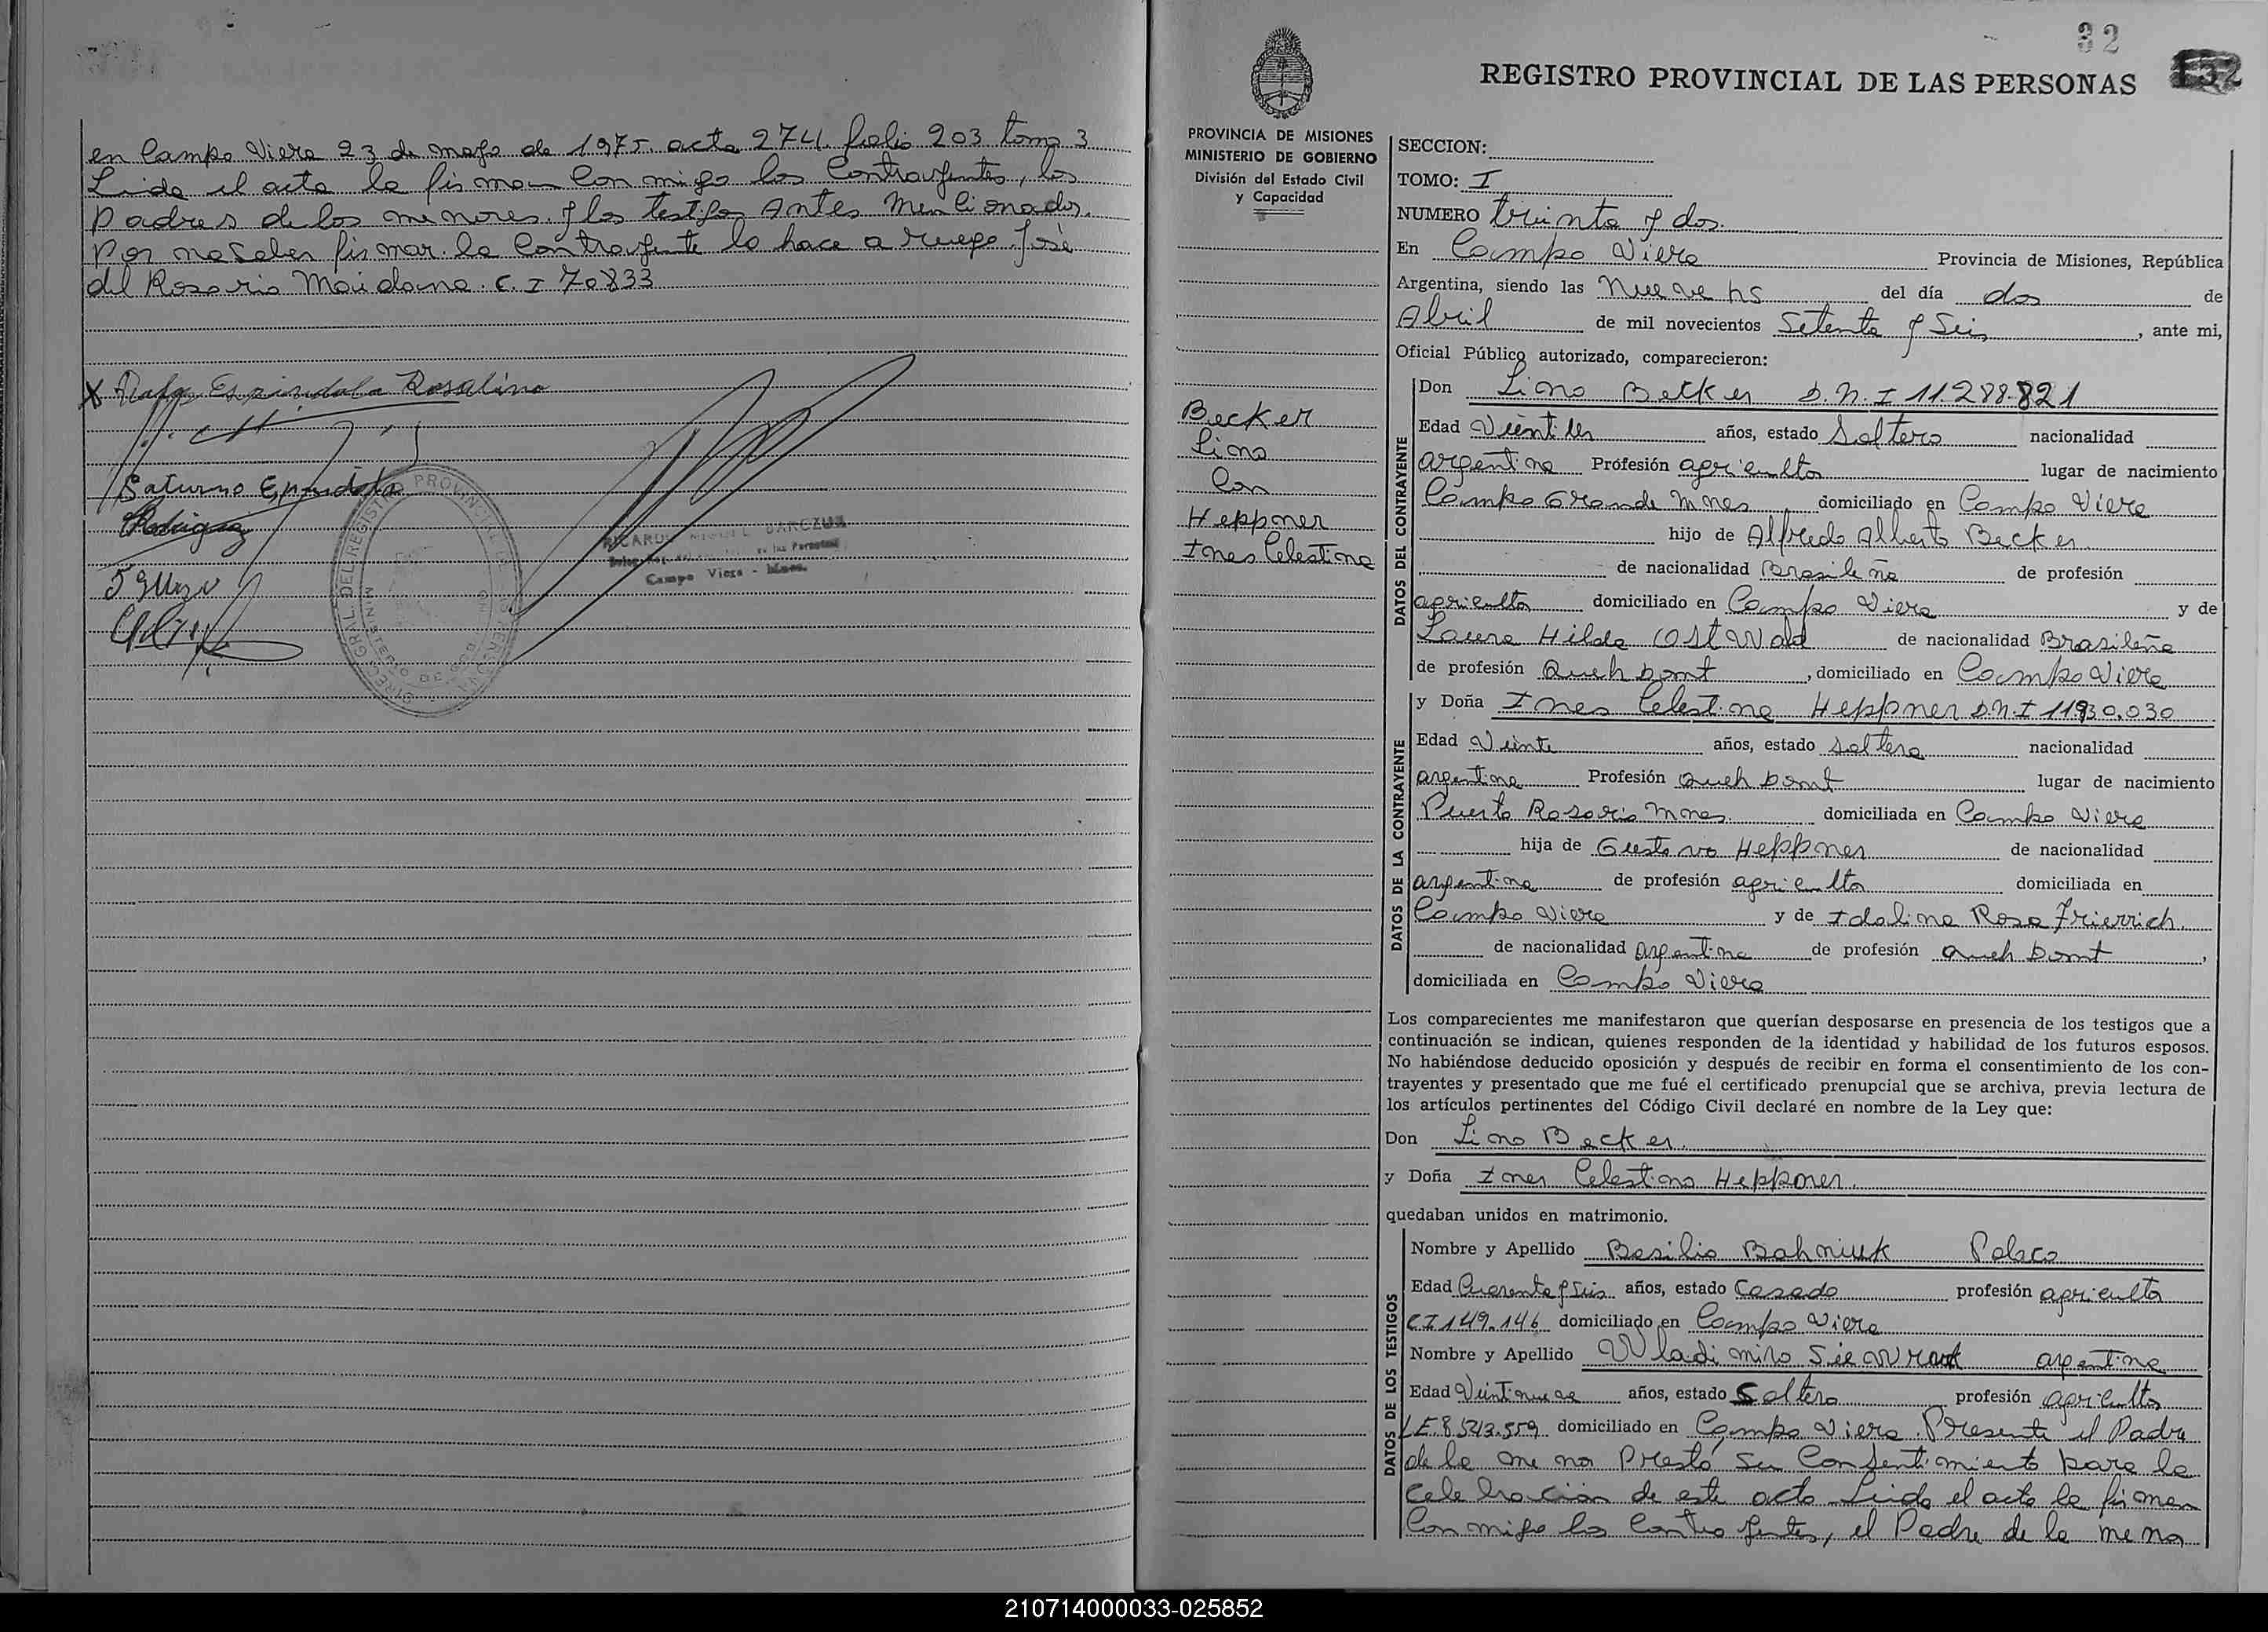 en Campo Viera 23 de mayo de 1975. acta 274. folio 203 tomo 3
Leida el acta la firman Conmigo los Contrayentes, los
Padres de los menores y los testigos Antes Mencionados.
Por no Saber firmar la Contrayente lo hace a ruego José
del Rosario Maidana. C. I 70833
X Espindola Rosalino
Saturno Espindola
Rodriguez
DIREC. GRAL. DEL REGISTRO PROVINCIAL DE LAS PERSONAS
MINISTERIO DE GOB.
RICARDO BARCZUK
de las Personas
Campo Viera - Mnes.
32
REGISTRO PROVINCIAL DE LAS PERSONAS
152
PROVINCIA DE MISIONES
MINISTERIO DE GOBIERNO
División del Estado Civil
y Capacidad
Becker
Lino
Con
Heppner
Ines Celestina
SECCION:
TOMO: I
NUMERO treinta y dos.
En Campo Viera Provincia de Misiones, República
Argentina, siendo las Nueve hs del día dos de
Abril de mil novecientos Setenta y Seis, ante mi,
Oficial Público autorizado, comparecieron:
DATOS DEL CONTRAYENTE
Don Lino Becker D.N.I 11.288.821
Edad Veinti años, estado Soltero nacionalidad
argentina Profesión agricultor lugar de nacimiento
Campo Grande Mnes domiciliado en Campo Viera
hijo de Alfredo Alberto Becker
de nacionalidad Brasileña de profesión
agricultor domiciliado en Campo Viera y de
Laura Hilda Ostwald de nacionalidad Brasileña
de profesión Queh Domt, domiciliado en Campo Viera
DATOS DE LA CONTRAYENTE
y Doña Ines Celestina Heppner D.N.I 11930.030
Edad Veinte años, estado Soltera nacionalidad
argentina Profesión Queh Domt lugar de nacimiento
Puerto Rosario Mnes. domiciliada en Campo Viera
hija de Gustavo Heppner de nacionalidad
argentina de profesión agricultor domiciliada en
Campo Viera y de Idalina Rosa Frierrich.
de nacionalidad argentina de profesión Queh Domt,
domiciliada en Campo Viera
Los comparecientes me manifestaron que querían desposarse en presencia de los testigos que a
continuación se indican, quienes responden de la identidad y habilidad de los futuros esposos.
No habiéndose deducido oposición y después de recibir en forma el consentimiento de los con-
trayentes y presentado que me fué el certificado prenupcial que se archiva, previa lectura de
los artículos pertinentes del Código Civil declaré en nombre de la Ley que:
Don Lino Becker.
y Doña Ines Celestina Heppner.
quedaban unidos en matrimonio.
DATOS DE LOS TESTIGOS
Nombre y Apellido Basilio Bahniuk Polaco
Edad Cuarenta y Seis años, estado Casado profesión agricultor
CI 149.146 domiciliado en Campo Viera
Nombre y Apellido Wladimiro argentina
Edad Veintinueve años, estado Soltero profesión agricultor
LE.8.543.559 domiciliado en Campo Viera. Presente el Padre
de la menor Prestó Su Consentimiento para la
Celebración de este acto Leida el acta la firman
Conmigo los Contrayentes, el Padre de la menor
210714000033-025852